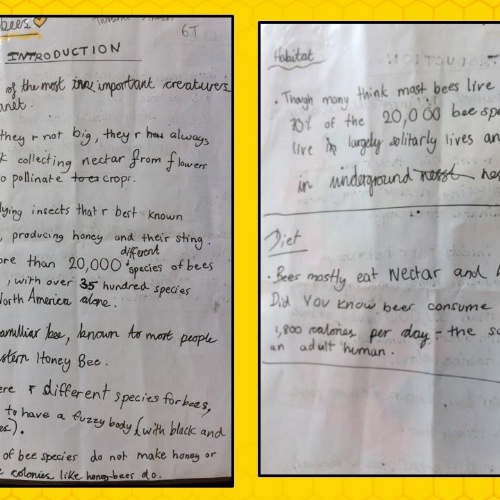 bees
6T
INTRODUCTION
of the most important creatures
anet.
they r not big, they r always
k collecting nectar from flowers
o pollinate crops.
lying insects that r best known
, producing honey and their sting.
different
ore than 20,000 species of bees
, with over 35 hundred species
North America alone.
amilliar bee, known to most people
stern Honey Bee.
ere r different species for bees,
to have a fuzzy body (with black and
es).
of bee species do not make honey or
e colonies like honey-bees do.
Habitat
. Though many think most bees live
70% of the 20,000 bee spe
live in largely solitarly lives an
in underground nesst nes
Diet
. Bees mostly eat Nectar and
Did You know beer consume
1,800 calories per day - the sa
an adult human.